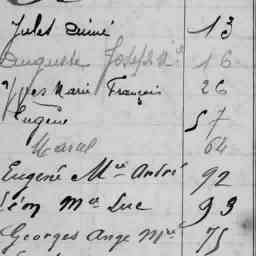 Jules Aimé 13
Auguste Joseph Mie 16
Yves Marie François 26
Eugène 57
Marcel 64
Eugené Mie André 92
Léon Me Luc 93
Georges Ange Mie 75